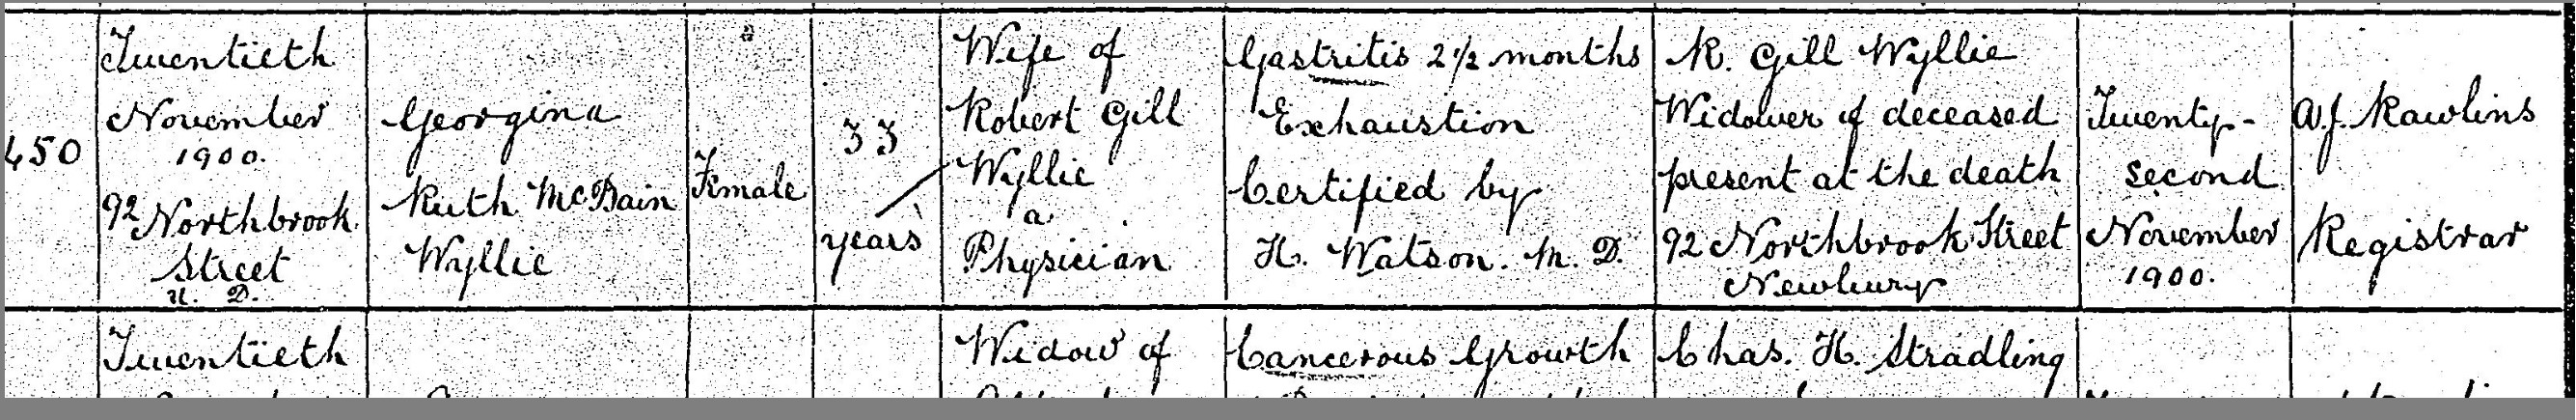 450
Twentieth
November
1900.
92 Northbrook
Street
U. D.
Georgina
Ruth McBain
Wyllie
Female
33
years
Wife of
Robert Gill
Wyllie
a
Physician
Gastritis 2½ months
Exhaustion
Certified by
H. Watson. M. D.
R. Gill Wyllie
Widower of deceased
present at the death
92 Northbrook Street
Newbury
Twenty-
second
November
1900.
A.J. Rawlins
Registrar
Twentieth
Widow of
Cancerous Growth
Chas. H. Stradling